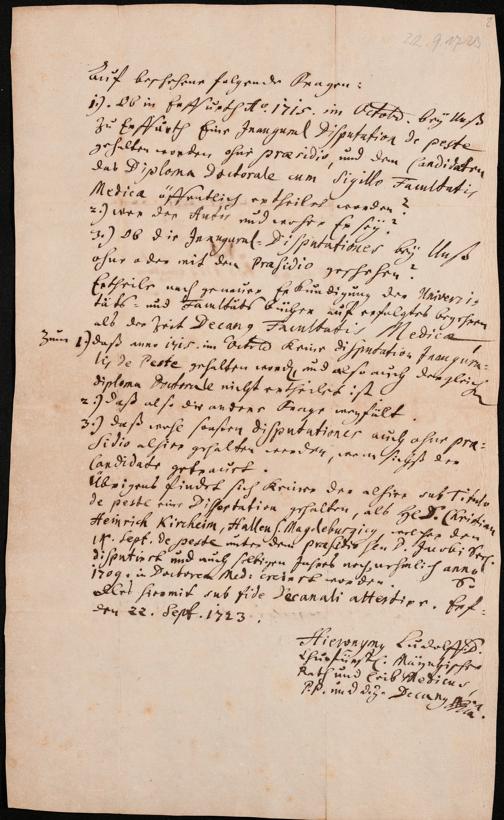 22.9.1723
Auf beschehene folgende Fragen:
1). Ob in Erffurth Ao. 1715. im Octobr. bey Unß
Zu Erffurth Eine Inaugural Disputation de peste
gehalten worden ohne præsidio, und dem Candidaten
das Diploma Doctorale cum Sigillo Facultatis
Medicæ öffentlich ertheilet worden?
2.) wer der Autor und woher Er sey?
3.) Ob die Inaugural-Disputationes bey Unß
ohne oder mit dem Præsidio geschehen?
Ertheile nach genauer Erkundigung der Universi-
täts- und Facultäts Bücher auf erfolgtes begehren
als der Zeit Decanus Facultatis Medicæ
Zum 1) daß anno 1715. im Octobr. keine disputation Inaugura-
lis de Peste gehalten worden und also auch dergleich
diploma Doctorale nicht ertheilet ist.
2.) daß also die andere Frage wegfält.
3.) daß wohl sonsten disputationes auch ohne præ-
sidio alhier gehalten werden, wenn sichs der
Candidatus getrauet.
Übrigens findet sich Keiner der alhier sub Titulo
de peste eine Dissertation gehalten, als H. D. Christian
Heinrich Kirchheim, Hallens. Magdeburgicus, welcher den
Sept. de peste unter dem præsidio D. Jacobi
disputiret und auch selbigen Jahres anno
1709. in Doctorem Med. creiret worden.
Alles hiermit sub fide Decanali attestire. Erf.
den 22. Sept. 1723.
Hieronymus Ludolff D.
Churfürstl. Mäyntzischer
Rath und Leib Medicus
P.P. und Decanus